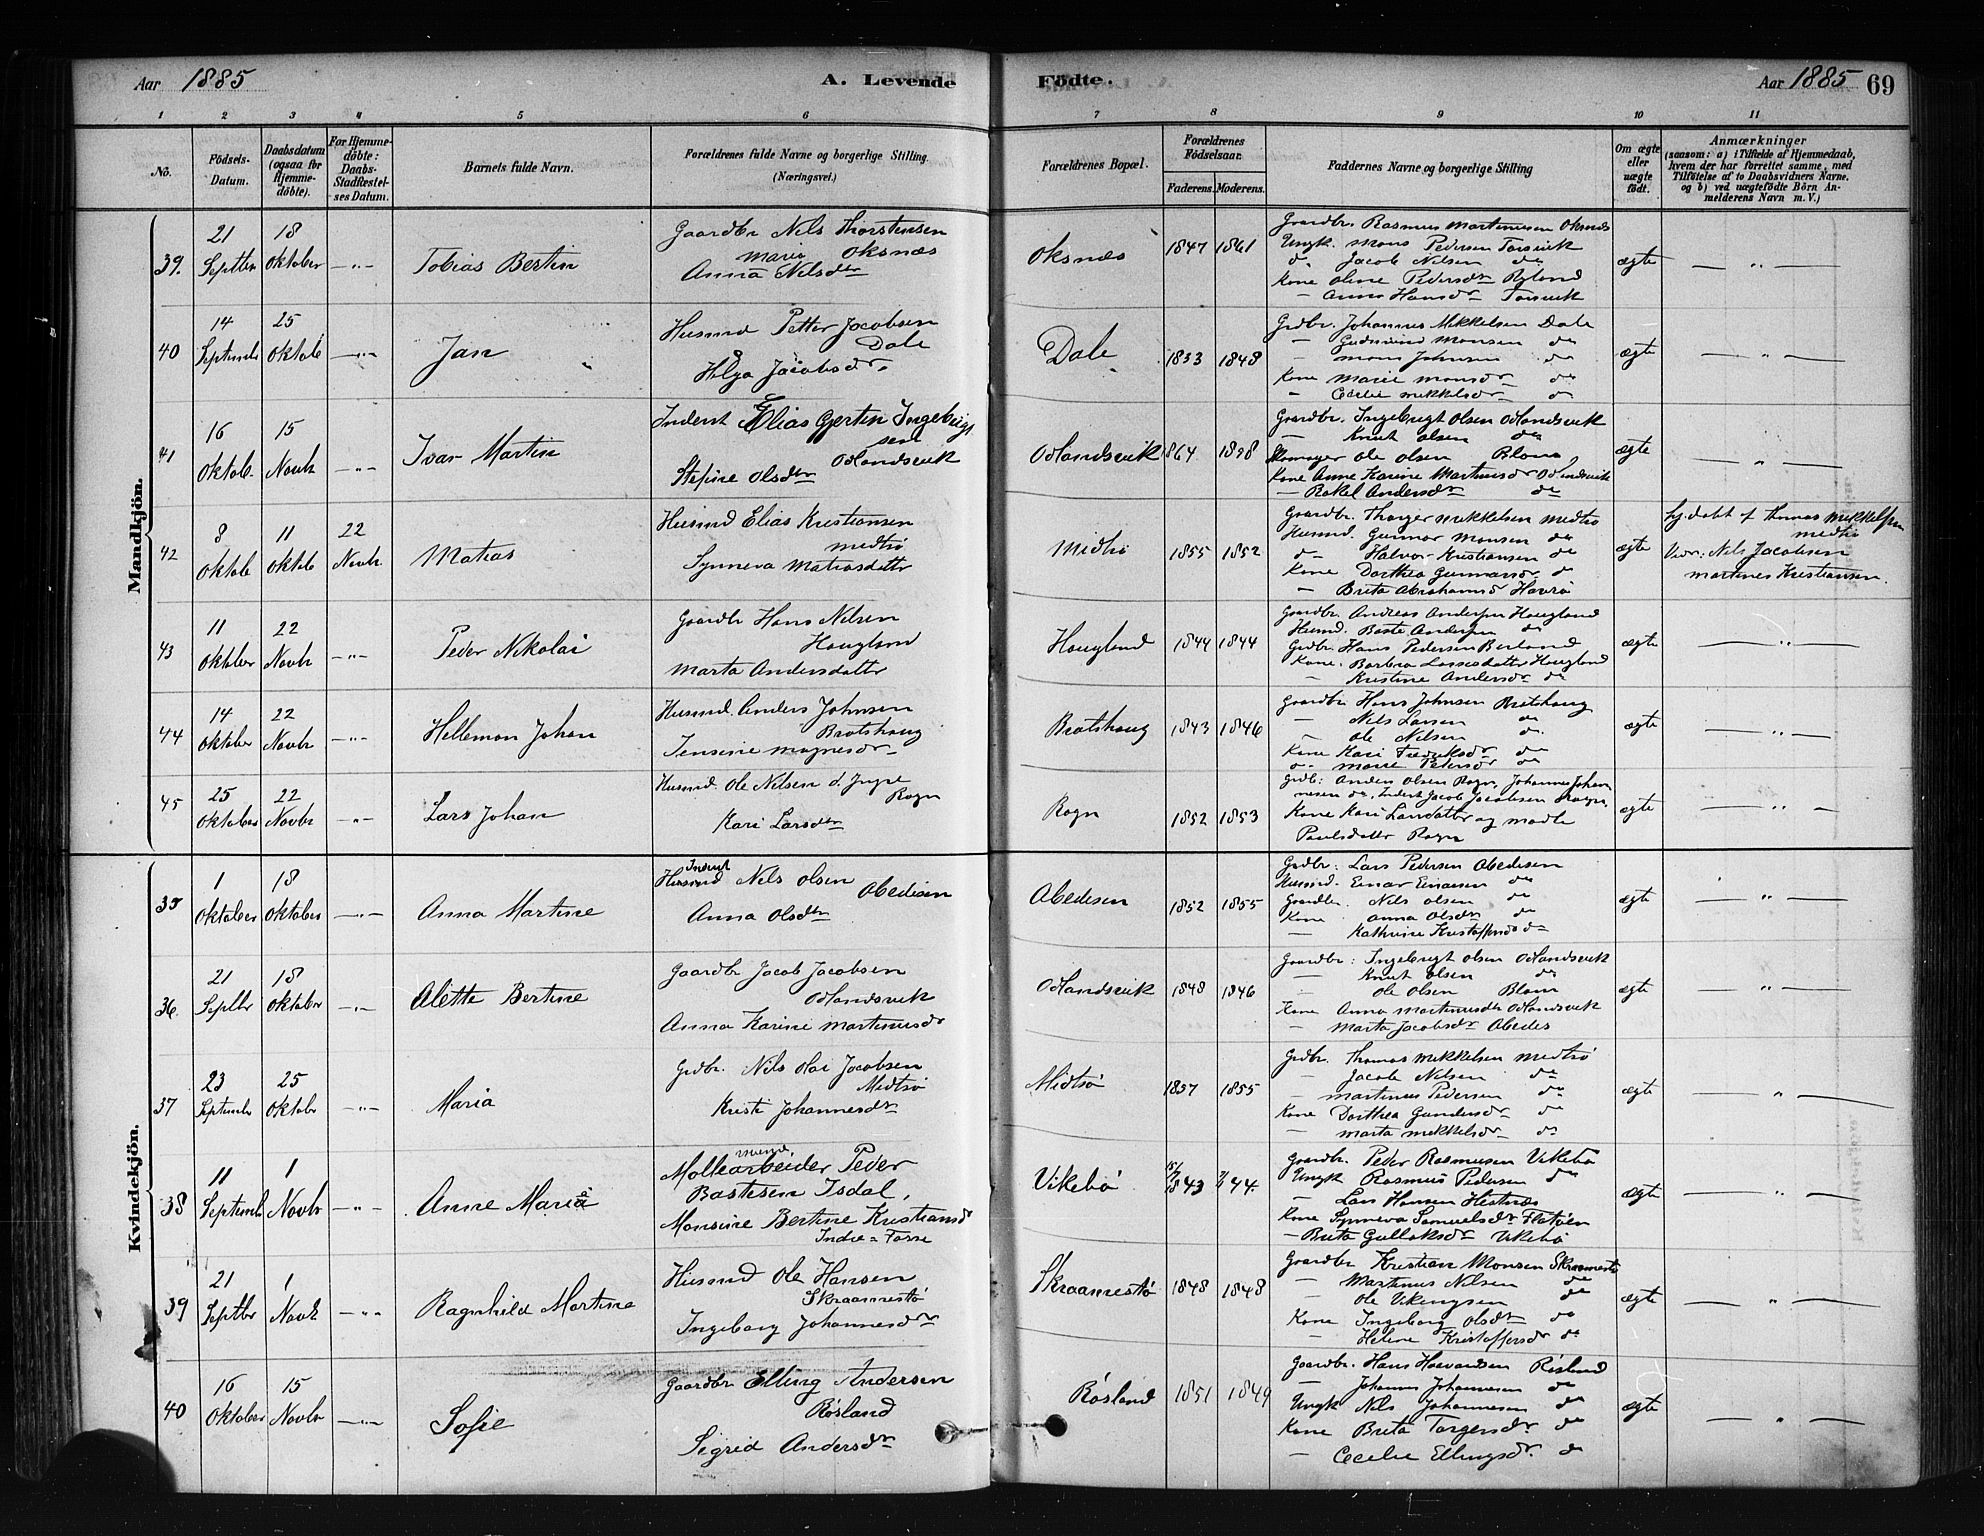 Aar 1885
A. Levende
Födte.
Aar 1885 69
1 2 3 4 5 6 7 8 9 10 11
No.
Födsels-
Datum.
Daabsdatum
(ogsaa for
Hjemme-
döbte).
For Hjemme-
döbte:
Daabs-
Stadfæstel-
ses Datum.
Barnets fulde Navn.
Forældrenes fulde Navne og borgerlige Stilling.
(Næringsvei.)
Forældrenes Bopæl.
Forældrenes
Födselsaar.
Faderens. Moderens.
Faddernes Navne og borgerlige Stilling
Om ægte
eller
uægte
födt.
Anmærkninger
(saasom: a) i Tilfælde af Hjemmedaab,
hvem der har forrettet samme, med
Tilföielse af to Daabsvidners Navne.
og b) ved uægtefödte Börn An-
melderens Navn m. V.)
Mandkjön.
39.
21
Septbr
18
Oktober
Tobias Bertin
Gaardbr Nils Thorstensen
Oksnæs
Anna Maria Nilsdtr
Oksnæs
1847 1861
Gaardbr. Rasmus Martinusen Oksnæs
Ungk. Mons Pedersen Torsvik
do Jacob Nilsen do
Kone Oline Pedersdtr Ryland
— Anna Hansdr Torsvik
ægte
40
14
Septembr
25
Oktob
Jan
Husmd Petter Jacobsen
Dale
Helga Jacobsdr.
Dale
1833 1848
Grdbr. Johannes Mikkelsen Dale
— Gudmund Monsen do
— Mons Johnsen do
Kone Marie Monsdr do
— Cecilie Mikkelsdr do
ægte
41
16
Oktob.
15
Novbr
Ivar Martin
Inderst Elias Gjertin Ingebrigt
sen
Odlandsvik
Stefine Olsdtr
Odlandsvik
1864
Gaardbr. Ingebrigt Olsen Odlandsvik
— Knut Olsen do
Skomager Ole Olsen Blom
Kone Anne Karine Martinusdr Odlandsvik
— Rakel Andersdr do
ægte
42
8
Oktob
11
Oktob
22
Novbr
Matias
Husmd Elias Kristiansen
Medtsö
Synneva Matiasdatter
Midtsö
1855 1852
Gaardbr. Thorger Mikkelsen Medtsö
Husmd. Gunnar Monsen do
do Halvor Kristiansen do
Kone Dorthea Gunnarsdr do
— Brita Abrahamsd Havrö
ægte
Hj.döbt af Thomas Mikkelsen
Medtsö
Vidn: Nils Jacobsen
Martines Kristiansen.
43
11
Oktober
22
Novbr
Peder Nikolai
Gaardbr Hans Nilsen
Hougland
Marta Andersdatter
Hougland
1844 1844
Gaardbr. Andreas Andersen Hougland
Husmd. Baste Andersen do
Grdbr. Hans Pedersen Berland
Kone. Barbra Lassesdatter Hougland
— Kristine Andersdr do
ægte
44
14
Oktober
22
Novbr
Hellemon Johan
Husmd. Anders Johnsen
Bratshaug
Jensine Magnesdr
Bratshaug
1843 1846
Gaardbr Hans Johnsen Bratshaug
— Nils Larsen do
— Ole Nilsen do
Kone Kari Fredriksdr do
do Marie Petersdr do
ægte
45
25
Oktober
22
Novbr
Lars Johan
Husmd. Ole Nilsen d. Yngre
Rogn
Kari Larsdtr
Rogn
1852 1853
Grdb: Anders Olsen Rogn, Johannes Johan
nesen do, Inderst Jacob Jacobsen Rogn,
Kone Kari Larsdatter og Madle
Paulsdatter Rogn
ægte
Kvindekjön.
35
1
Oktober
18
Oktober
Anna Martine
Inderst
Husmd Nils Olsen
Abedisen
Anna Olsdtr
Abedisen
1852 1855
Grdbr: Lars Pedersen Abedisen
Husmd. Einar Einarsen do
Gaardbr. Nils Olsen do
Kone Anna Olsdtr do
— Kathrine Kristoffersdr do
ægte
36.
21
Septbr
18
Oktober
Alette Bertine
Gaardbr Jacob Jacobsen
Odlandsvik
Anna Karine Martinusdr
Odlandsvik
1848 1846
Gaardbr: Ingebrigt Olsen Odlandsvik
— Knut Olsen do
Ole Olsen Blom
Kone Anna Martinusdtr Odlandsvik
— Marta Jacobsdr Abedes
ægte
37
23
Septembr
25
Oktobr
Maria
Grdbr. Nils Olai Jacobsen
Midtsö
Kristi Johannesdtr
Midtsö
1857 1855
Grdbr. Thomas Mikkelsen Medtsö
— Jacob Nilsen do
— Martinus Pedersen do
Kone Dorthea Gundersdr do
— Marta Mikkelsdr do
ægte
38
11
Septembr
1
Novbr
Anne Maria
Möllearbeider Peder
Bastesen Isdal,
Monsine Bertine Kristiansd
Indre Fosse
Vikebö
15/6 1843 44.
Gaardbr. Peder Rasmusen Vikebö
Ungk Rasmus Pedersen do
— Lars Hansen Hestnæs
Kone Synneva Samuelsdr Flatöen
— Brita Gullaksdr Vikebö
ægte
39
21
Septbr
1
Novbr
Ragnhild Martine
Husmd Ole Hansen
Skraamestö
Ingeborg Johannesdr
Skraamestö
1848 1848
Gaardbr Kristian Monsen Skraamestö
— Martinus Nilsen do
— Ole Vikingsen do
Kone Ingeborg Olsdtr do
— Helene Kristoffersdr do
ægte
40
16
Oktober
15
Novbr
Sofie
Gaardbr Elling Andersen
Rösland
Sigrid Andersdtr
Rösland
1851 1849
Gaardbr. Hans Haavardsen Rösland
— Johannes Johannesen do
Ungk Nils Johannesen do
Kone Brita Torgersdr do
— Cecilie Ellingsdr do
ægte